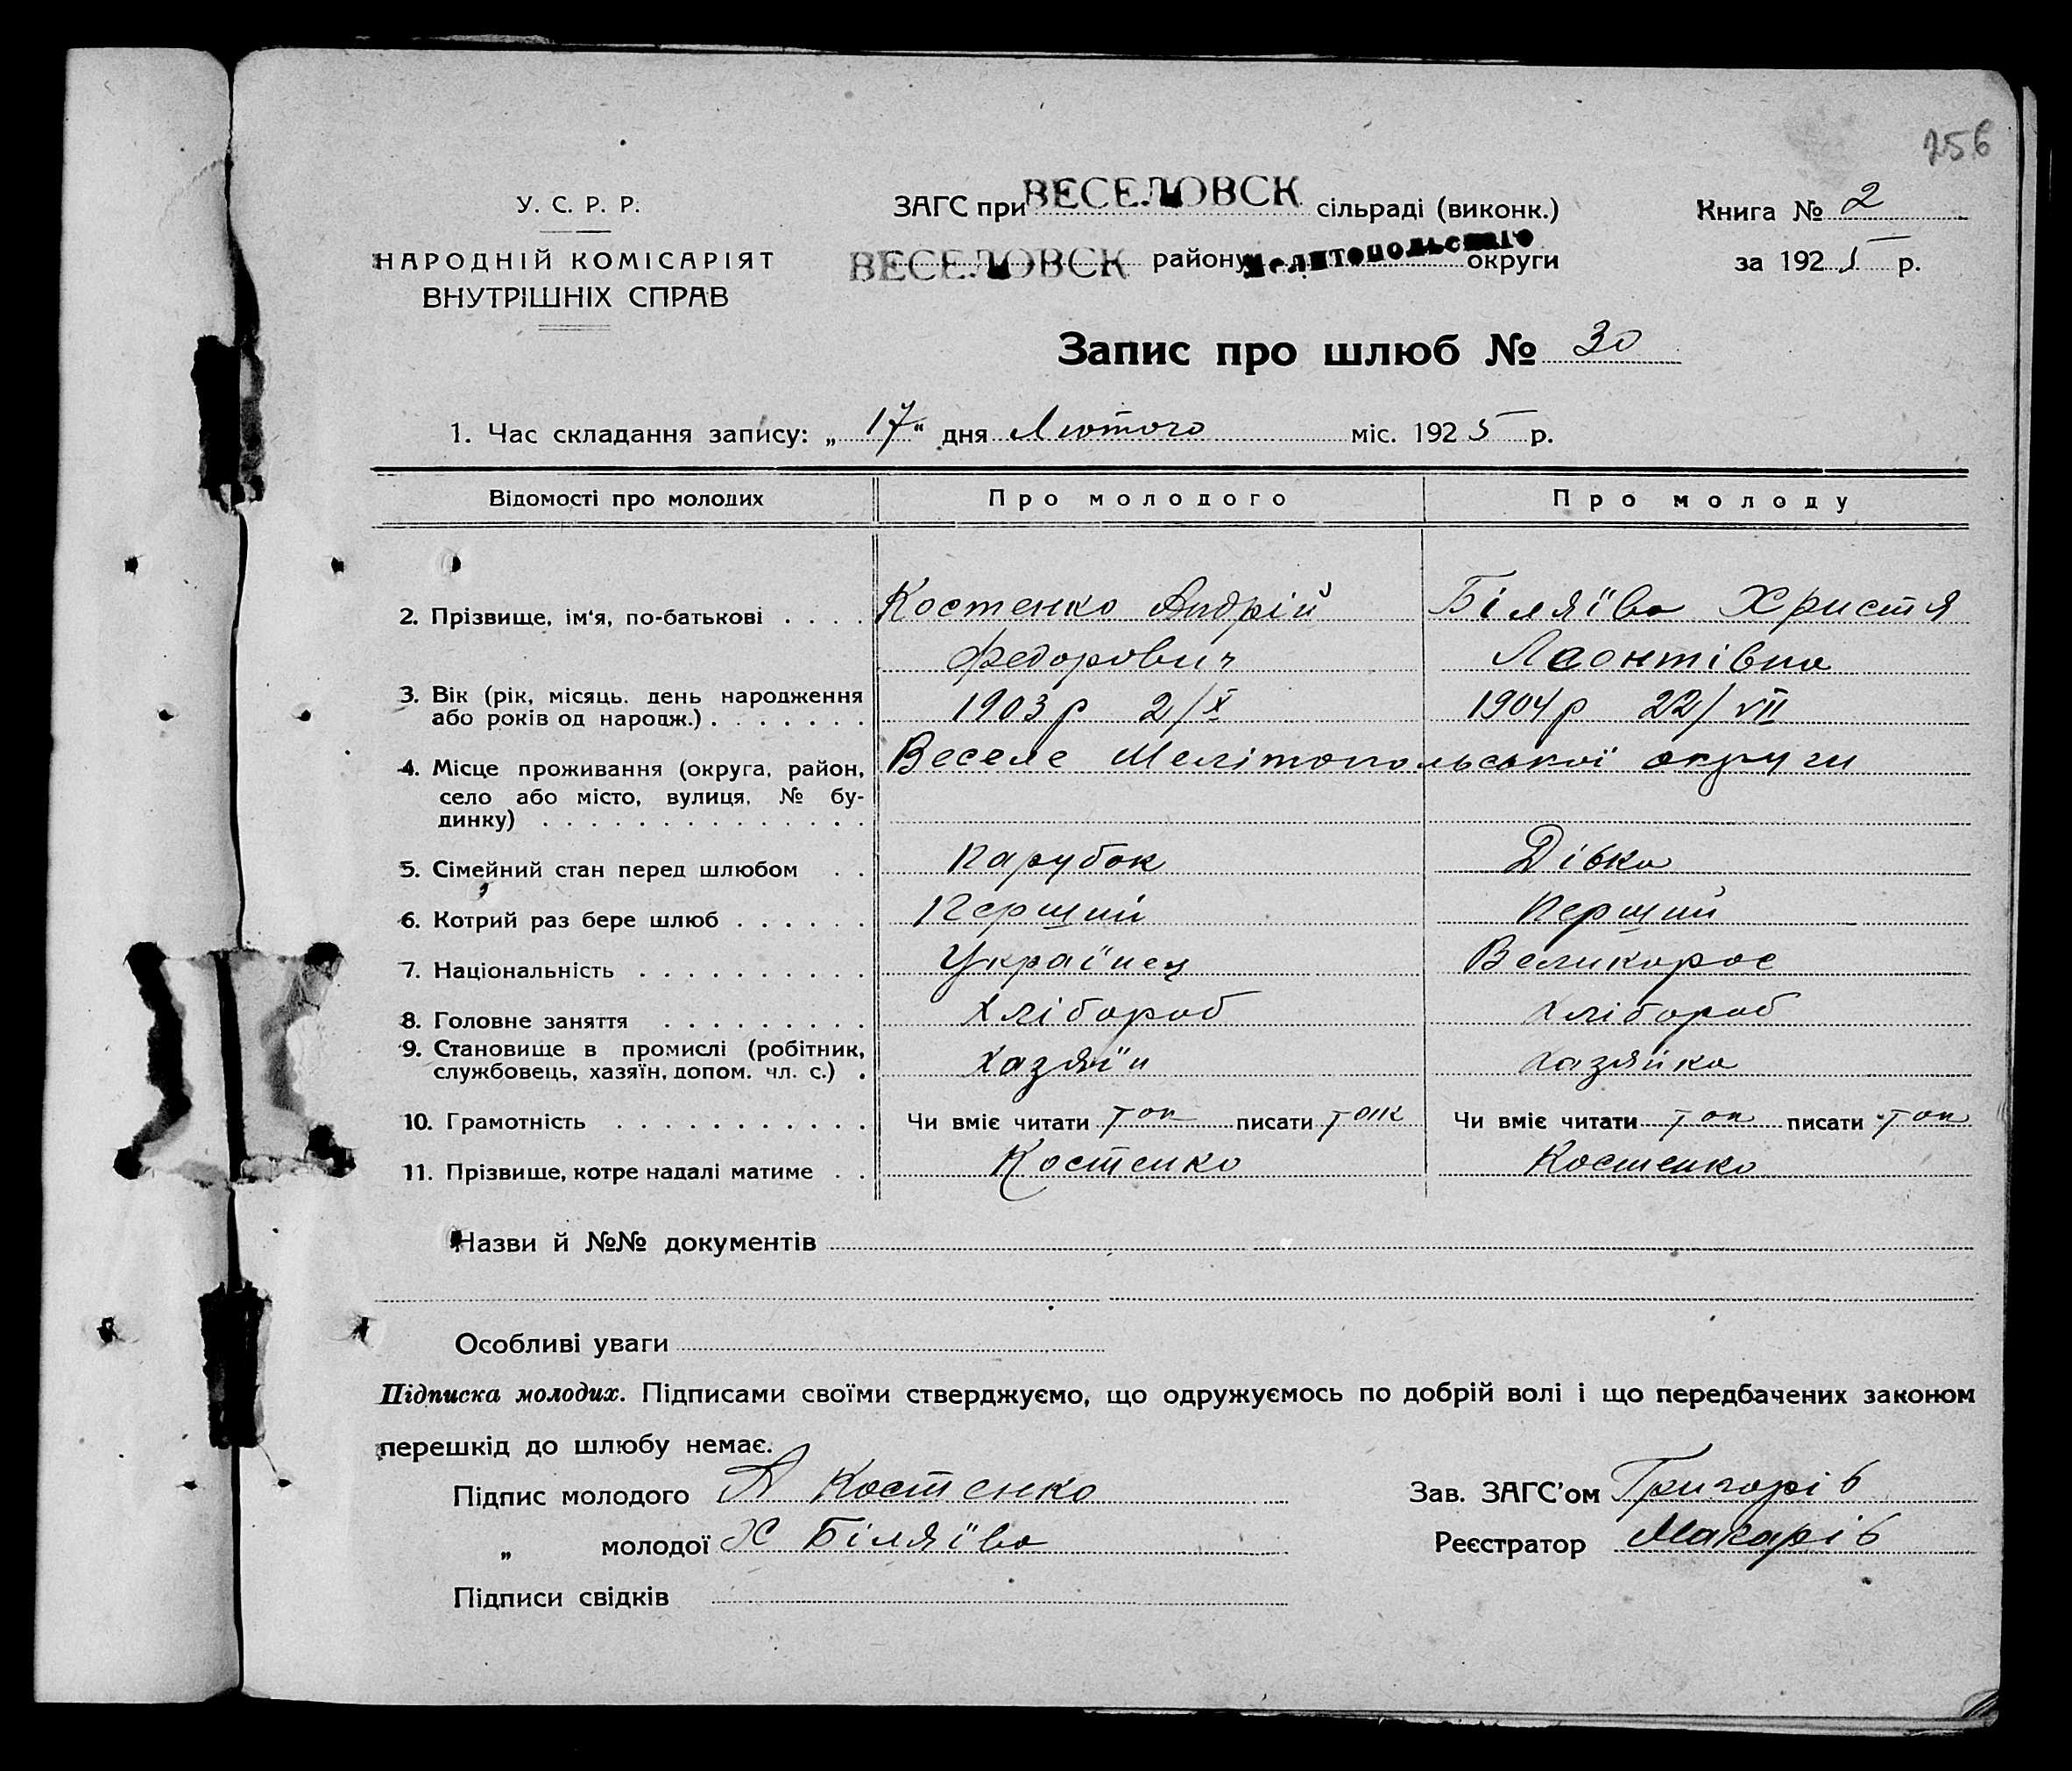 256
У. С. Р. Р.
НАРОДНІЙ КОМІСАРІЯТ
ВНУТРІШНІХ СПРАВ
ЗАГС при ВЕСЕЛОВСК сільраді (виконк.)
ВЕСЕЛОВСК району Мелитопольскаго округи
Книга № 2
за 1925 р.
Запис про шлюб № 30
1. Час складання запису: „17“ дня Лютого міс. 1925 р.
Відомості про молодих Про молодого Про молоду
2. Прізвище, ім'я, по-батькові . . . . Костенко Андрій Біляїва Христя
Федорович Лаонтівна
3. Вік (рік, місяць. день народження 1903 р 2/X 1904 р 22/VII
або років од нароdж.) . . . . . . .
4. Місце проживання (округа, район, Веселе Мелітопольської округи
село або місто, вулиця, № бу-
динку) . . . . . . . . . . . . . .
5. Сімейний стан перед шлюбом . . Парубок Дівка
6. Котрий раз бере шлюб . . . . . . Перший Перший
7. Національність . . . . . . . . . . Українец Великорос
8. Головне заняття . . . . . . . . . Хлібороб Хлібороб
9. Становище в промислі (робітник, Хазяїн Хазяйка
службовець, хазяїн, допом. чл. с.) .
10. Грамотність . . . . . . . . . . . Чи вміє читати так писати так Чи вміє читати так писати так
11. Прізвище, котре надалі матиме . . Костенко Костенко
Назви й №№ документів
Особливі уваги
Підписка молодих. Підписами своїми стверджуємо, що одружуємось по добрій волі і що передбачених законом
перешкід до шлюбу немає.
Підпис молодого А Костенко Зав. ЗАГС'ом Григорів
„ молодої Х Біляїва Реєстратор Макарів
Підписи свідків